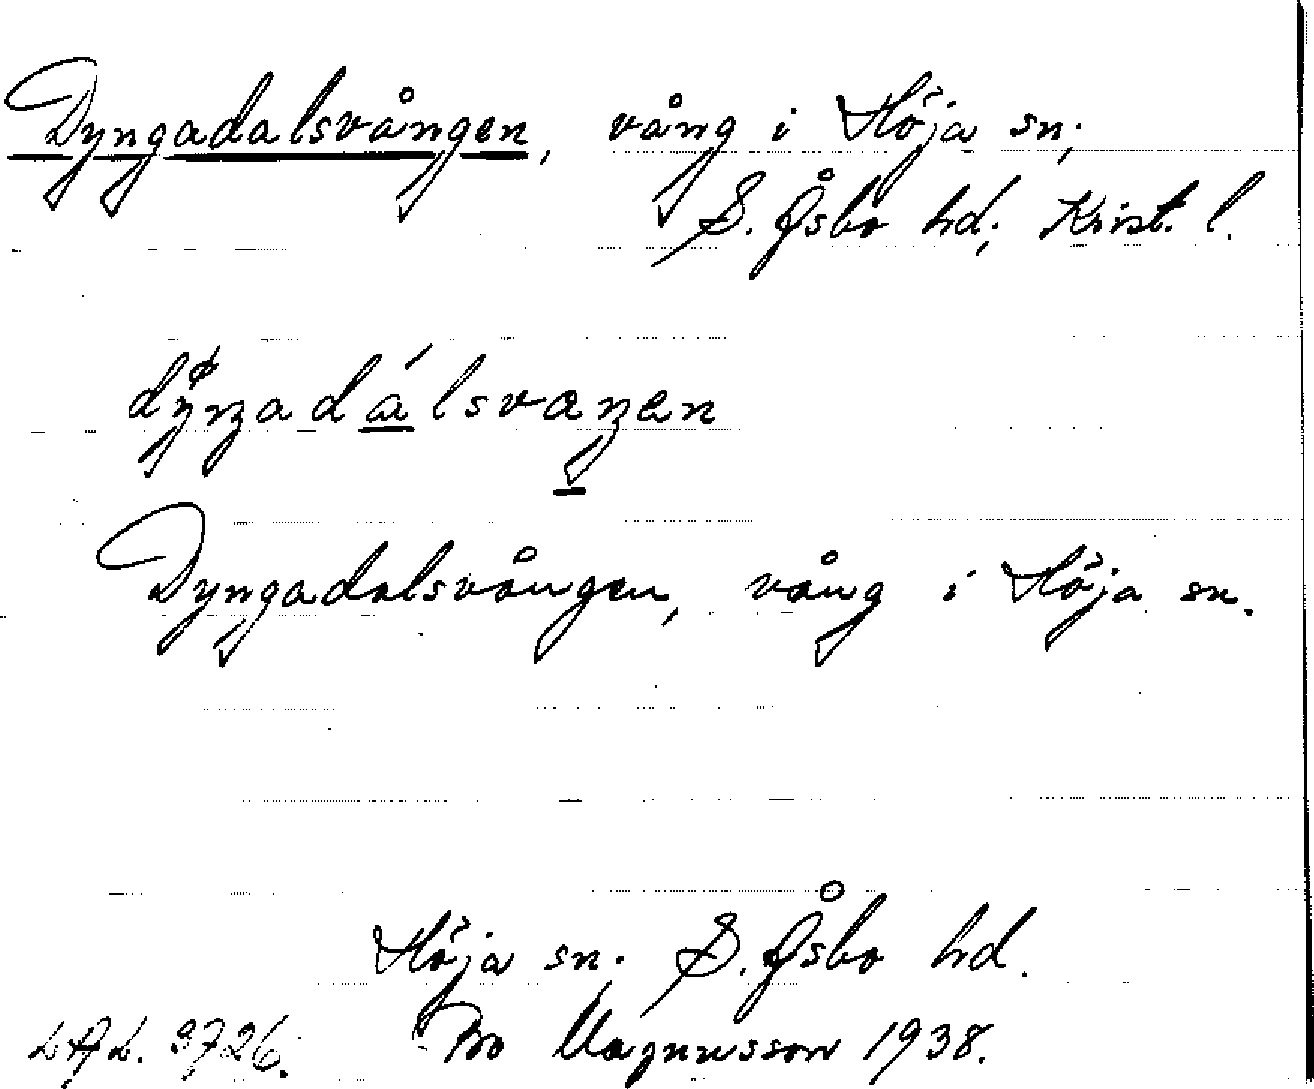 Dyngadalsvången, vång i Höja sn;
S. Åsbo hd; Krist. l.
Dyngadalsvången, vång i Höja sn.
Höja sn. S. Åsbo hd.
LAL. 3726. Bo Magnusson 1938.